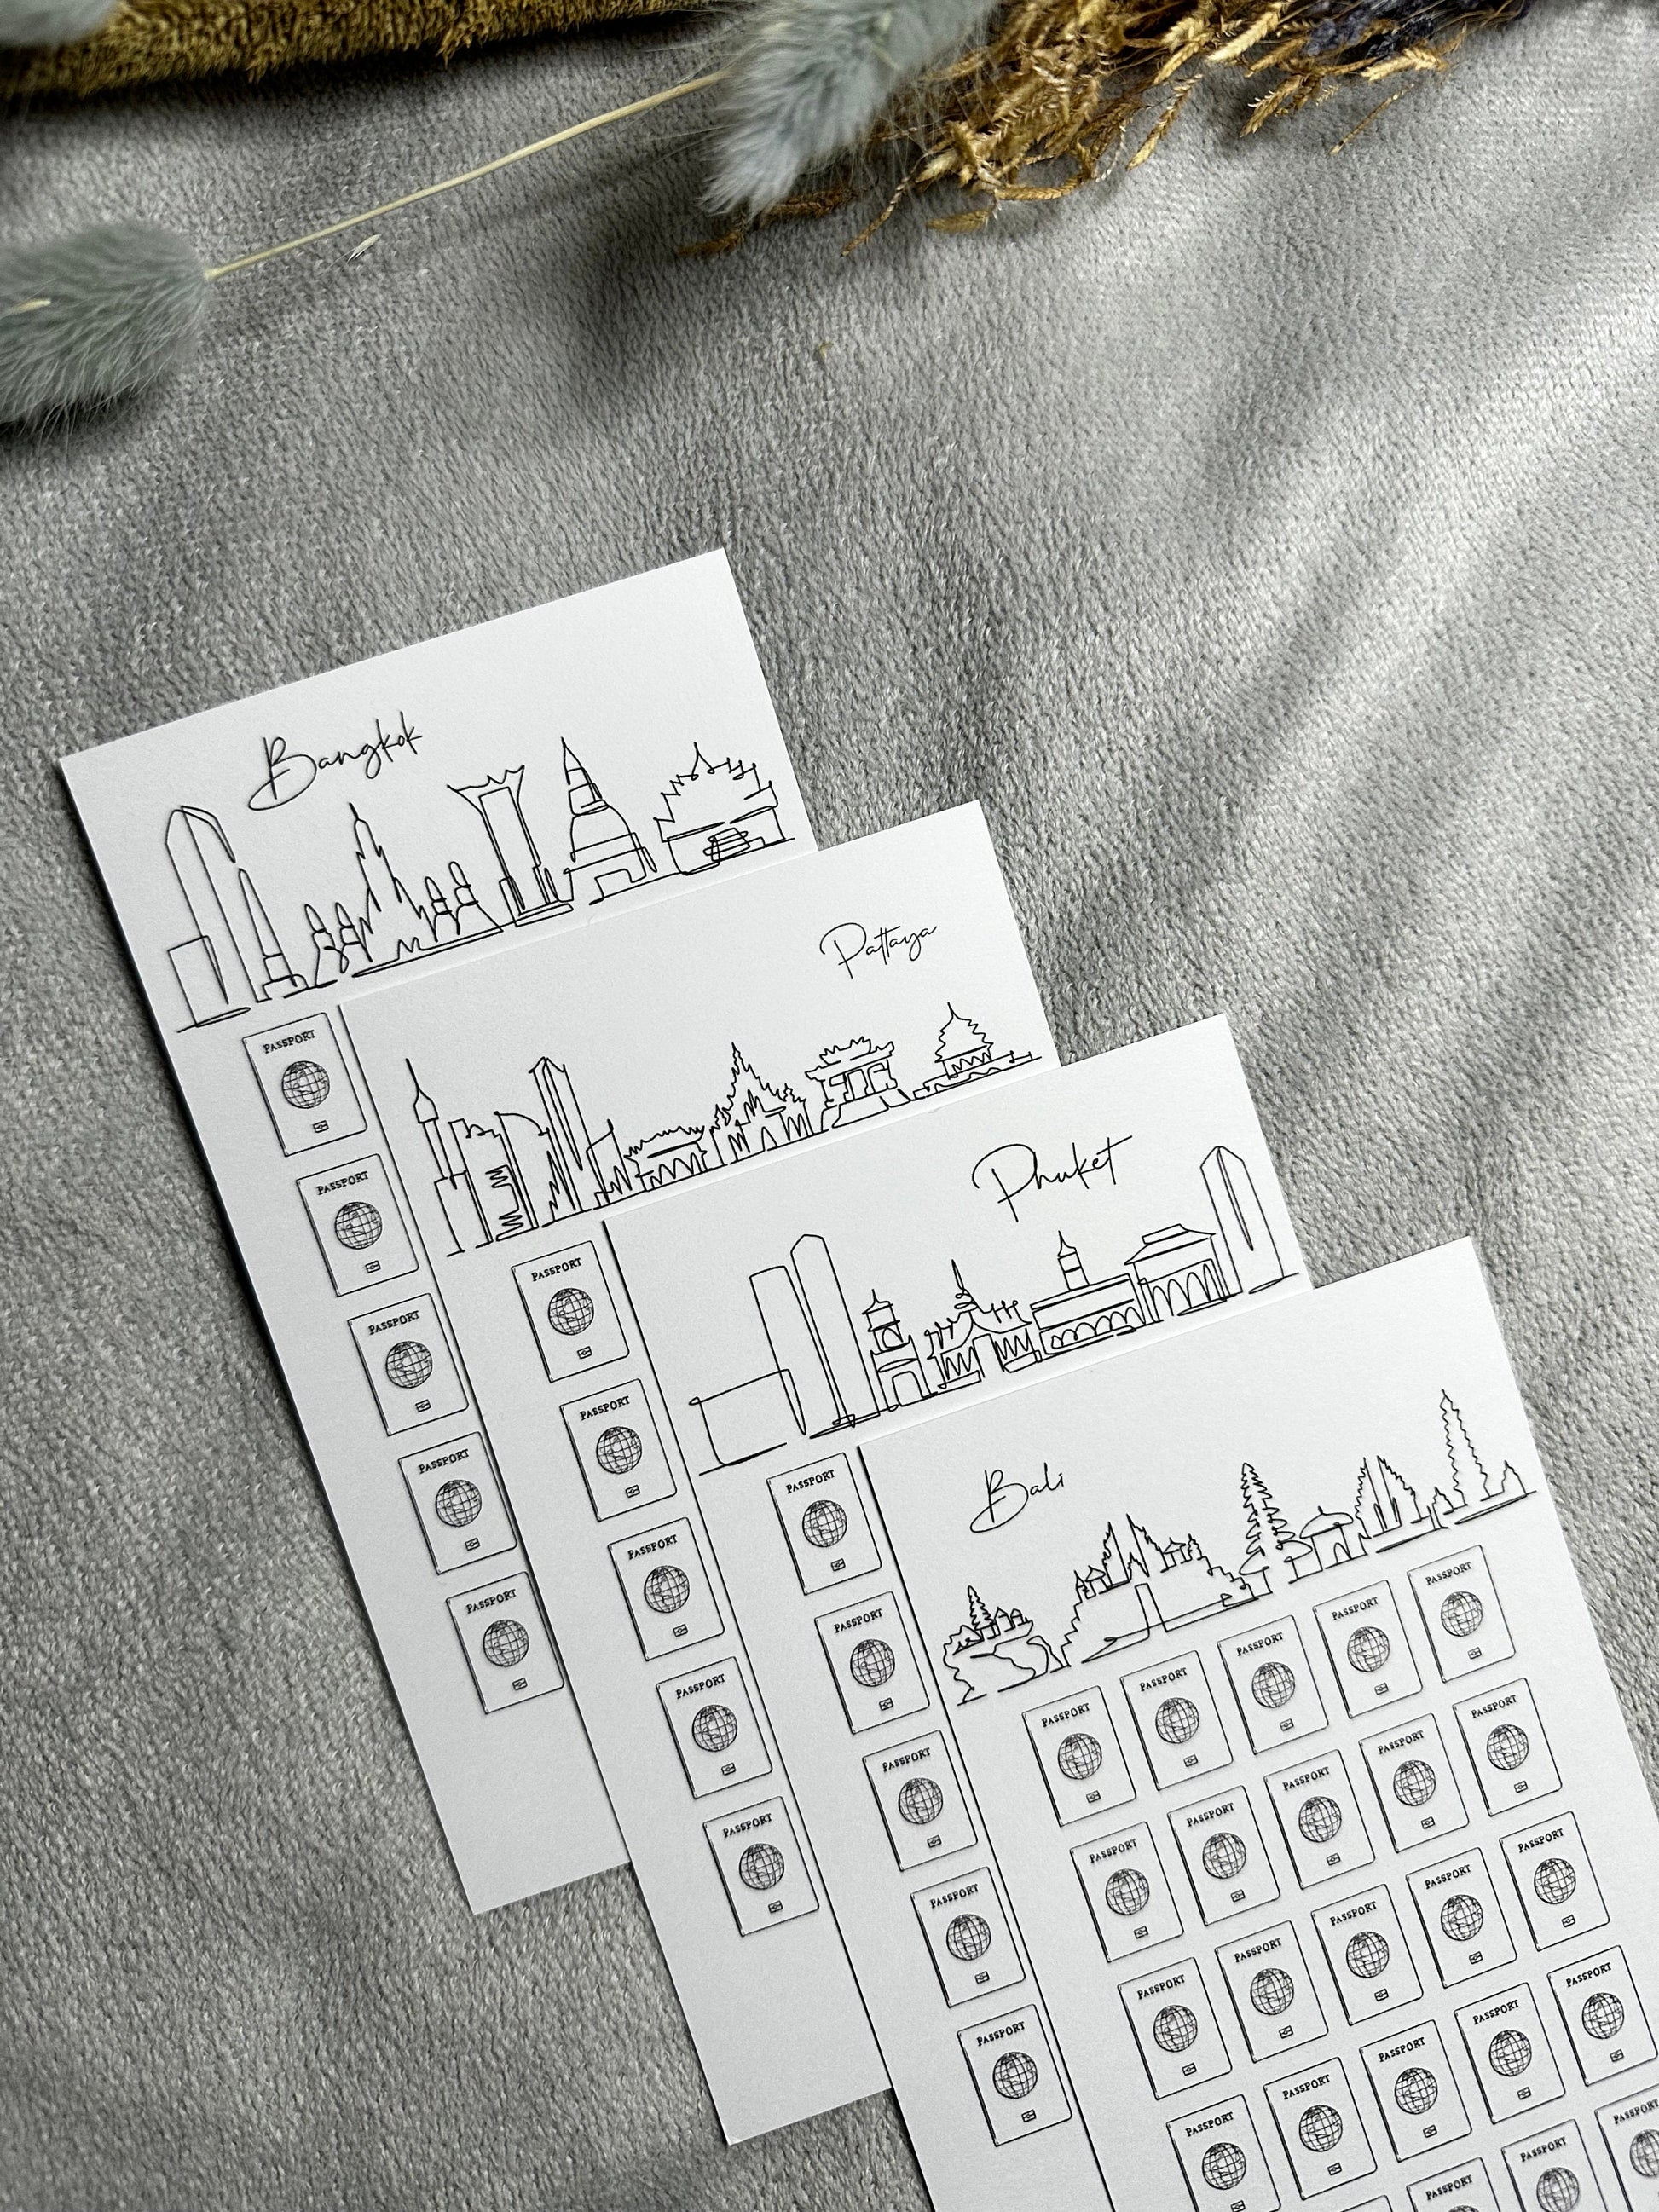 Bangkok
PASSPORT
PASSPORT
PASSPORT
PASSPORT
PASSPORT
Pattaya
PASSPORT
PASSPORT
PASSPORT
PASSPORT
PASSPORT
Phuket
PASSPORT
PASSPORT
PASSPORT
PASSPORT
PASSPORT
Bali
PASSPORT PASSPORT PASSPORT PASSPORT PASSPORT
PASSPORT PASSPORT PASSPORT PASSPORT PASSPORT
PASSPORT PASSPORT PASSPORT PASSPORT PASSPORT
PASSPORT PASSPORT PASSPORT PASSPORT PASSPORT
PASSPORT PASSPORT PASSPORT